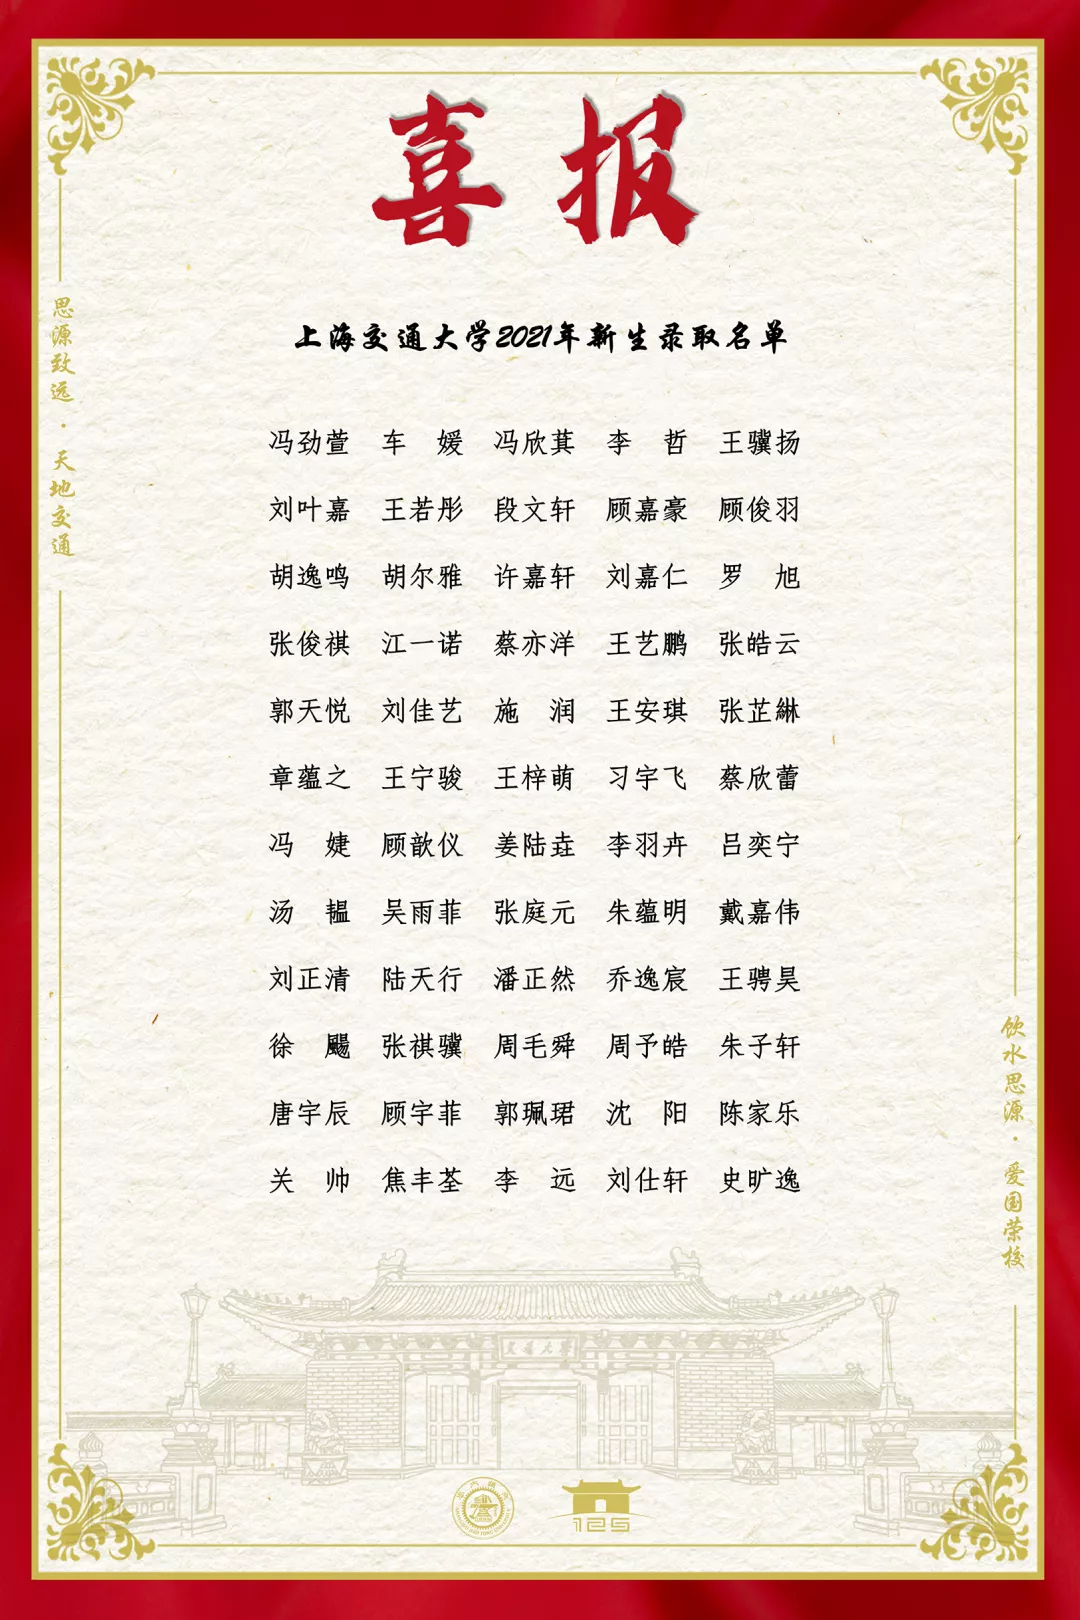 喜报
上海交通大学2021年新生录取名单
思源致远·天地交通
冯劲萱 车媛 冯欣萁 李哲 王骥扬
刘叶嘉 王若彤 段文轩 顾嘉豪 顾俊羽
胡逸鸣 胡尔雅 许嘉轩 刘嘉仁 罗旭
张俊祺 江一诺 蔡亦洋 王艺鹏 张皓云
郭天悦 刘佳艺 施润 王安琪 张芷綝
章蕴之 王宁骏 王梓萌 习宇飞 蔡欣蕾
冯婕 顾歆仪 姜陆垚 李羽卉 吕奕宁
汤韫 吴雨菲 张庭元 朱蕴明 戴嘉伟
刘正清 陆天行 潘正然 乔逸宸 王骋昊
徐飏 张祺骥 周毛舜 周予皓 朱子轩
唐宇辰 顾宇菲 郭珮珺 沈阳 陈家乐
关帅 焦丰荃 李远 刘仕轩 史旷逸
饮水思源·爱国荣校
交通大学
125